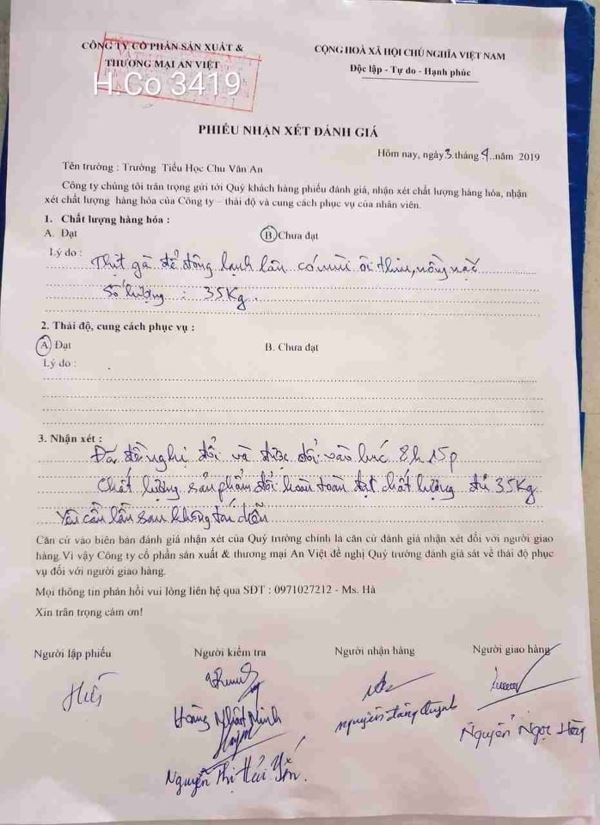 CÔNG TY CỔ PHẦN SẢN XUẤT &
THƯƠNG MẠI AN VIỆT
H.Co 3419
CỘNG HOÀ XÃ HỘI CHỦ NGHĨA VIỆT NAM
Độc lập - Tự do - Hạnh phúc
PHIẾU NHẬN XÉT ĐÁNH GIÁ
Hôm nay, ngày 3 tháng 4 năm 2019
Tên trường : Trường Tiểu Học Chu Văn An
Công ty chúng tôi trân trọng gửi tới Quý khách hàng phiếu đánh giá, nhận xét chất lượng hàng hóa, nhận
xét chất lượng hàng hóa của Công ty – thái độ và cung cách phục vụ của nhân viên.
1. Chất lượng hàng hóa :
A. Đạt B. Chưa đạt
Lý do : Thịt gà để đông lạnh lâu có mùi ôi thiu, nồng nặc
Số lượng : 35Kg.
2. Thái độ, cung cách phục vụ :
A. Đạt B. Chưa đạt
Lý do :
3. Nhận xét :
Đã đề nghị đổi và được đổi vào lúc 8h15p
Chất lượng sản phẩm đổi hoàn toàn đạt chất lượng đủ 35Kg
Yêu cầu lần sau không tái diễn
Căn cứ vào biên bản đánh giá nhận xét của Quý trường chính là căn cứ đánh giá nhận xét đối với người giao
hàng.Vì vậy Công ty cổ phần sản xuất & thương mại An Việt đề nghị Quý trường đánh giá sát về thái độ phục
vụ đối với người giao hàng.
Mọi thông tin phản hồi vui lòng liên hệ qua SĐT : 0971027212 - Ms. Hà
Xin trân trọng cảm ơn!
Người lập phiếu Người kiểm tra Người nhận hàng Người giao hàng
Hoàng Nhật Minh
Nguyễn Đăng Quỳnh
Nguyễn Ngọc
Nguyễn Thị Hải Yến.